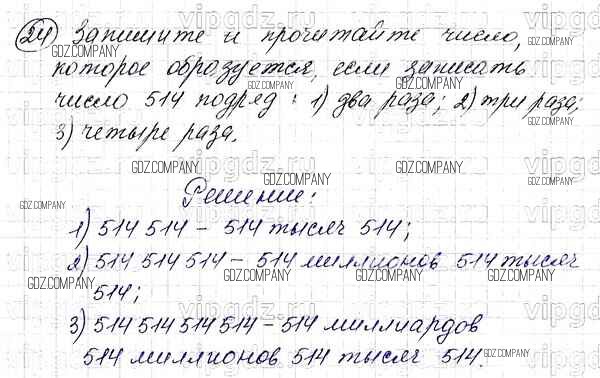 24 Запишите и прочитайте число,
которое образуется, если записать
число 514 подряд : 1) два раза; 2) три раза;
3) четыре раза.
Решение:
1) 514 514 – 514 тысяч 514;
2) 514 514 514 – 514 миллионов 514 тысяч
514;
3) 514 514 514 514 – 514 миллиардов
514 миллионов 514 тысяч 514.